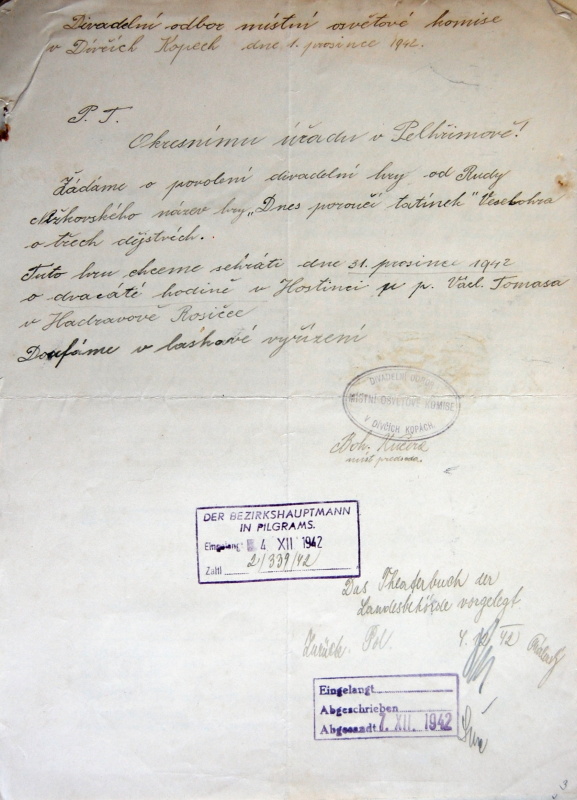 Divadelní odbor místní osvětové komise
v Dívčích Kopech dne 1. prosince 1942.
P. T.
Okresnímu úřadu v Pelhřimově!
Žádáme o povolení divadelní hry od Rudy
Mařkovského název hry „Dnes poroučí tatínek" Veselohra
o třech dějstvích.
Tuto hru chceme sehráti dne 31. prosince 1942
o dvacáté hodině v Hostinci u p. Václ. Tomasa
v Hadravově Rosičce
Doufáme v laskavé vyřízení
DIVADELNÍ ODBOR
MÍSTNÍ OSVĚTOVÉ KOMISE
V DÍVČÍCH KOPÁCH
Boh. Kučera
míst. předseda.
DER BEZIRKSHAUPTMANN
IN PILGRAMS.
Eingelangt 4 XII 1942
Zahl 2/339/42
Das Theaterbuch der
Landesbehörde vorgelegt
Zurück. Pol. 4. 12 42
Eingelangt
Abgeschrieben
Abgesandt 7. XII. 1942